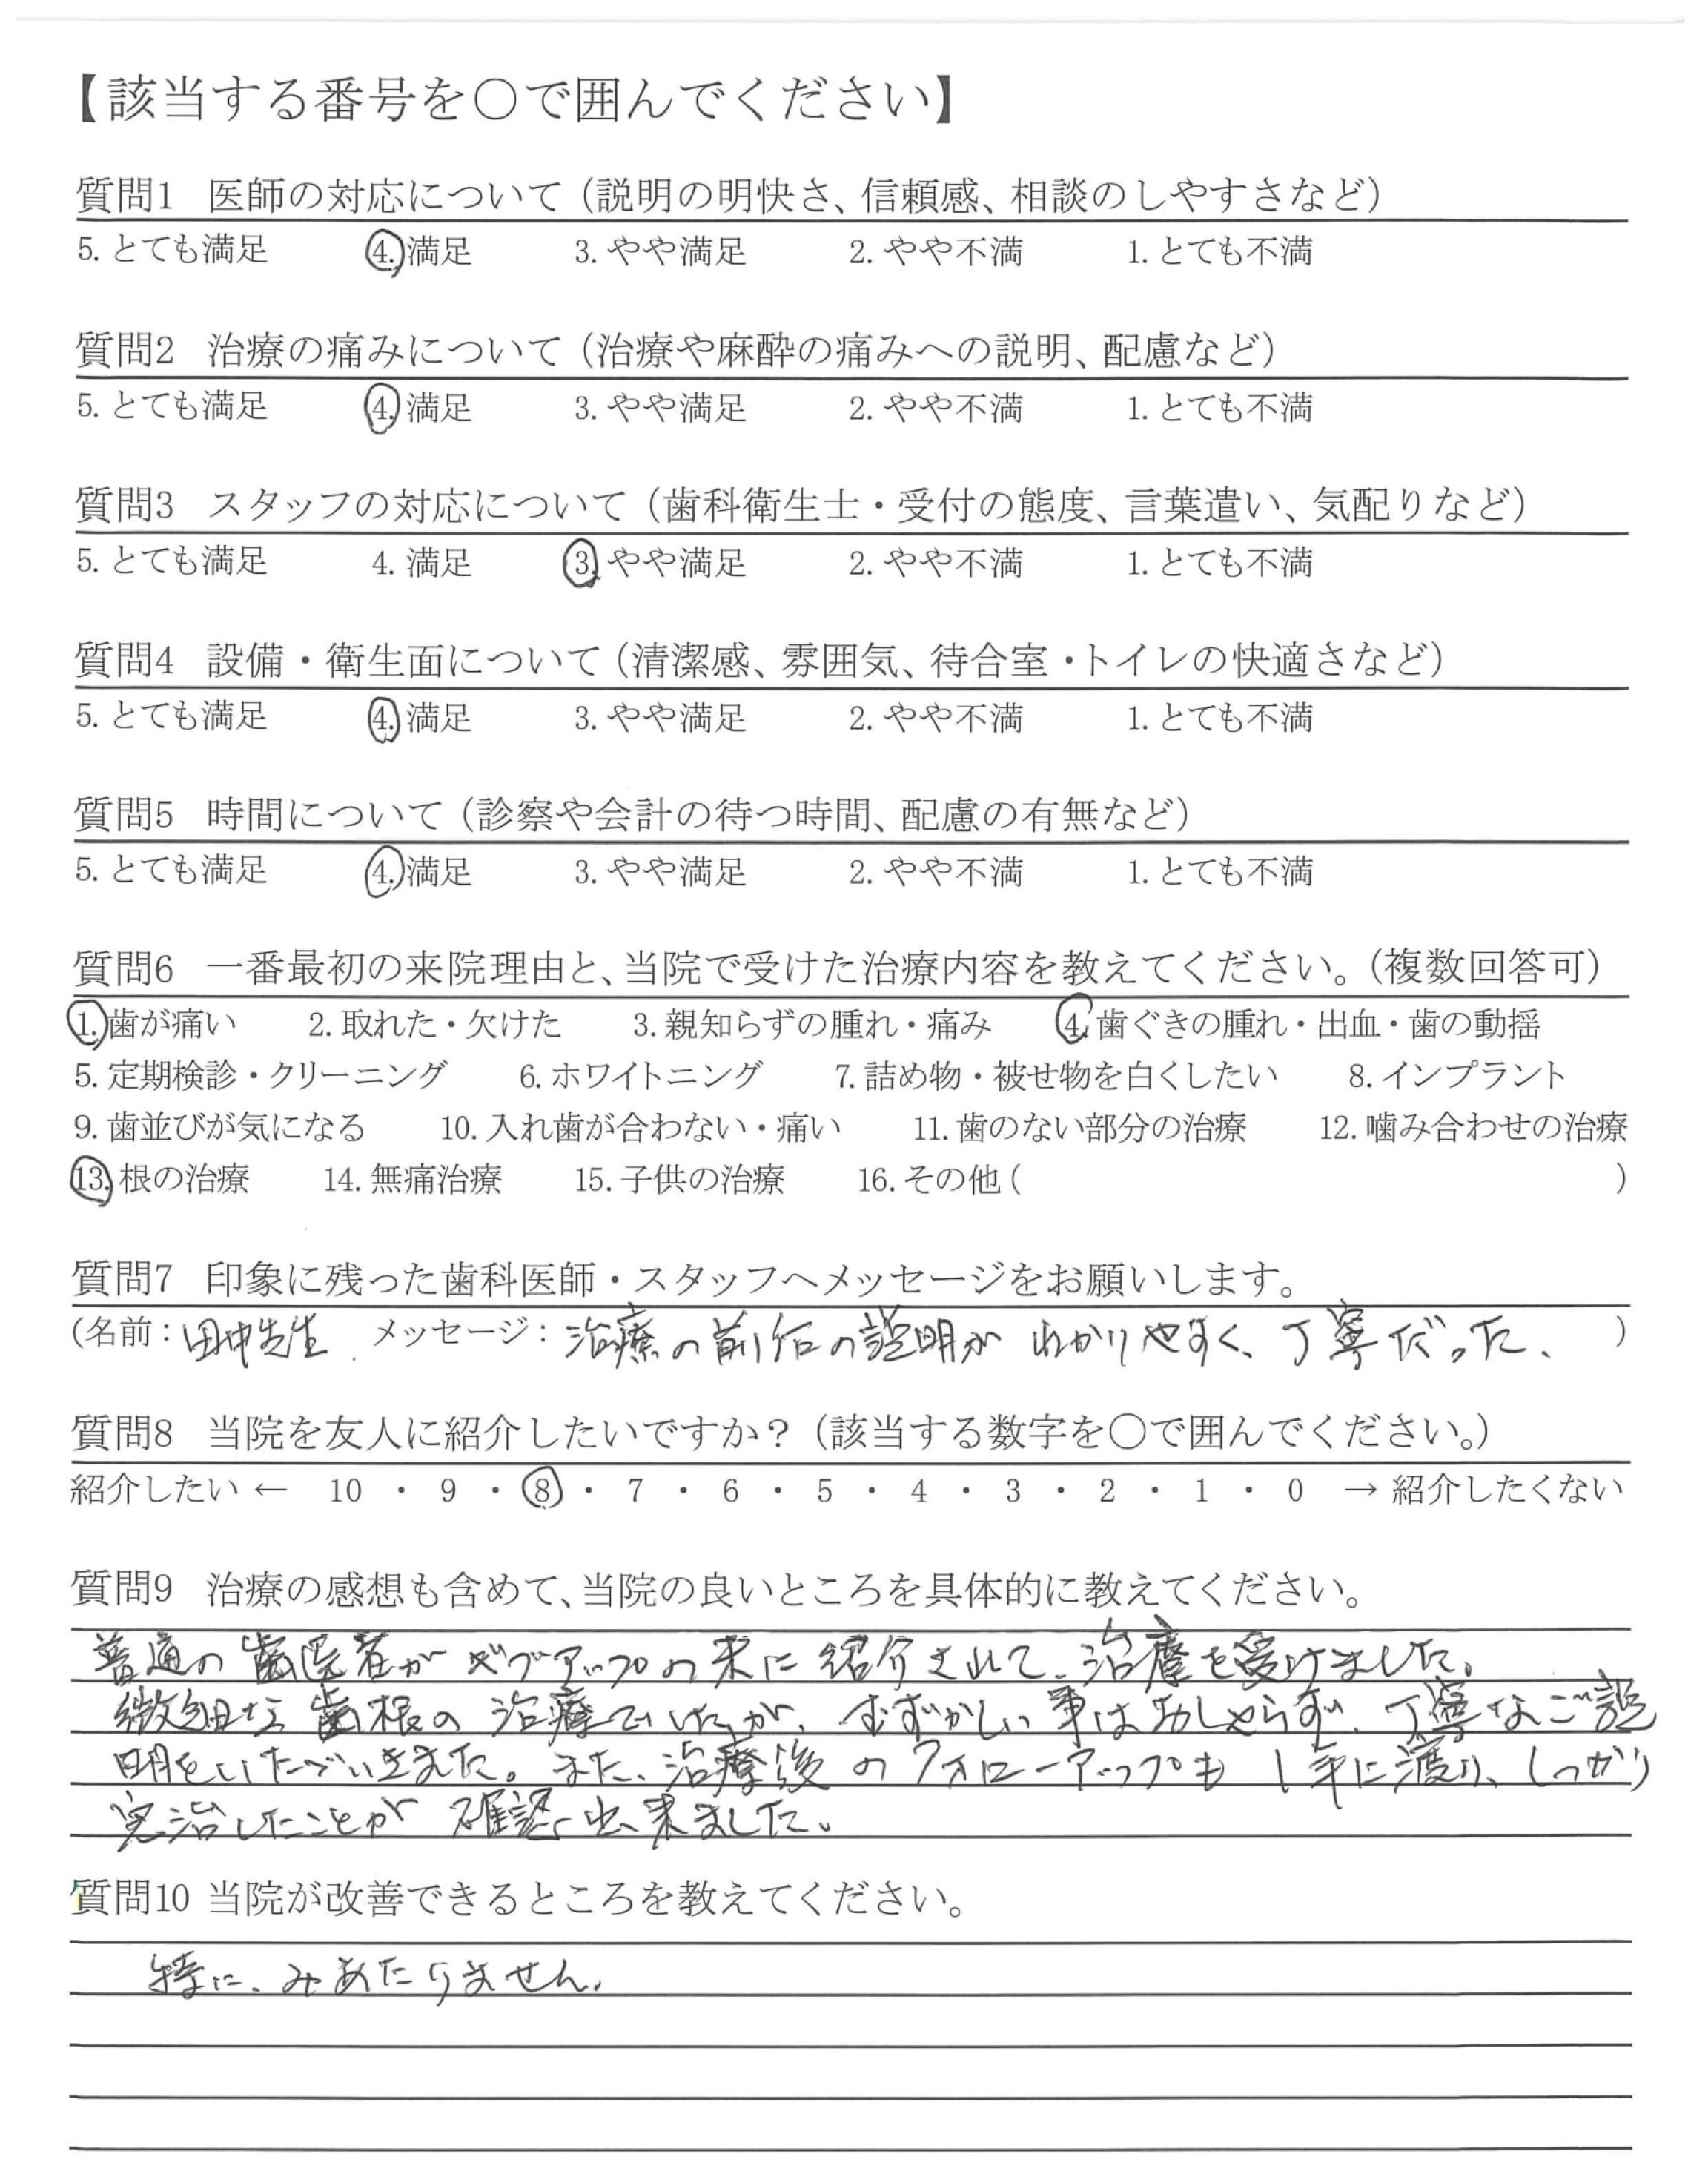 【該当する番号を〇で囲んでください】
質問1 医師の対応について（説明の明快さ、信頼感、相談のしやすさなど）
5. とても満足 4. 満足 3. やや満足 2. やや不満 1. とても不満
質問2 治療の痛みについて（治療や麻酔の痛みへの説明、配慮など）
5. とても満足 4. 満足 3. やや満足 2. やや不満 1. とても不満
質問3 スタッフの対応について（歯科衛生士・受付の態度、言葉遣い、気配りなど）
5. とても満足 4. 満足 3. やや満足 2. やや不満 1. とても不満
質問4 設備・衛生面について（清潔感、雰囲気、待合室・トイレの快適さなど）
5. とても満足 4. 満足 3. やや満足 2. やや不満 1. とても不満
質問5 時間について（診察や会計の待つ時間、配慮の有無など）
5. とても満足 4. 満足 3. やや満足 2. やや不満 1. とても不満
質問6 一番最初の来院理由と、当院で受けた治療内容を教えてください。（複数回答可）
1. 歯が痛い 2. 取れた・欠けた 3. 親知らずの腫れ・痛み 4. 歯ぐきの腫れ・出血・歯の動揺
5. 定期検診・クリーニング 6. ホワイトニング 7. 詰め物・被せ物を白くしたい 8. インプラント
9. 歯並びが気になる 10. 入れ歯が合わない・痛い 11. 歯のない部分の治療 12. 噛み合わせの治療
13. 根の治療 14. 無痛治療 15. 子供の治療 16. その他（ ）
質問7 印象に残った歯科医師・スタッフへメッセージをお願いします。
（名前：田中先生 メッセージ：治療の前后の説明が わかりやすく、丁寧だった。）
質問8 当院を友人に紹介したいですか？（該当する数字を〇で囲んでください。）
紹介したい ← 10 ・ 9 ・ 8 ・ 7 ・ 6 ・ 5 ・ 4 ・ 3 ・ 2 ・ 1 ・ 0 → 紹介したくない
質問9 治療の感想も含めて、当院の良いところを具体的に教えてください。
普通の歯医者がギブアップの末に紹介されて、治療を受けました。
微細な歯根の治療でしたが、むずかしい事はおしゃらず、丁寧なご説
明をいただいきました。また、治療後のフォローアップも1年に渡り、しっかり
完治したことが確認出来ました。
質問10 当院が改善できるところを教えてください。
特に、みあたりません。